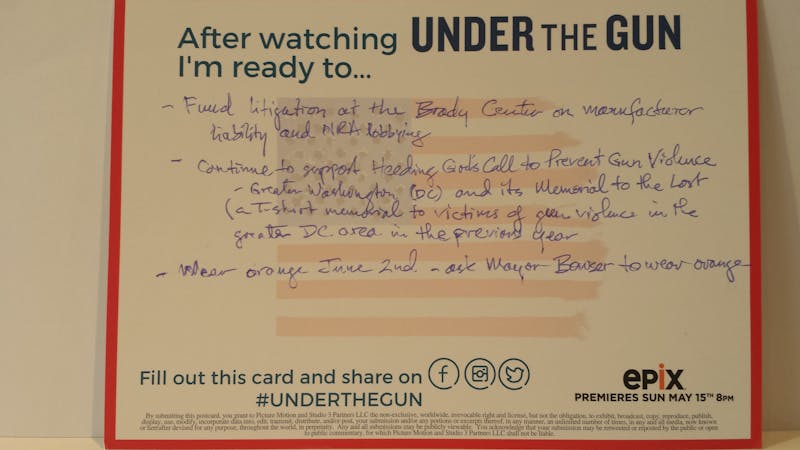 After watching UNDER THE GUN
I'm ready to...
- Fund litigation at the Brady Center on manufacturor
liability and NRA lobbying
- Continue to support Heeding God's Call to Prevent Gun Violence
- Greater Washington (DC) and its Memorial to the Lost
(a T-shirt memorial to victims of gun violence in the
greater DC area in the previous year
- Wear orange June 2nd - ask Mayor Bowser to wear orange
Fill out this card and share on
#UNDERTHEGUN
epix
PREMIERES SUN MAY 15TH 8PM
By submitting this postcard, you grant to Picture Motion and Studio 3 Partners LLC the non-exclusive, worldwide, irrevocable right and license, but not the obligation, to exhibit, broadcast, copy, reproduce, publish,
display, use, modify, incorporate data into, edit, transmit, distribute, and/or post, your submission and/or any portions or excerpts thereof, in any manner, an unlimited number of times, in any and all media, now known
or hereafter devised for any purpose, throughout the world, in perpetuity. Any and all submissions may be publicly viewable. You acknowledge that your submission may be retweeted or reposted by the public or open
to public commentary, for which Picture Motion and Studio 3 Partners LLC shall not be liable.